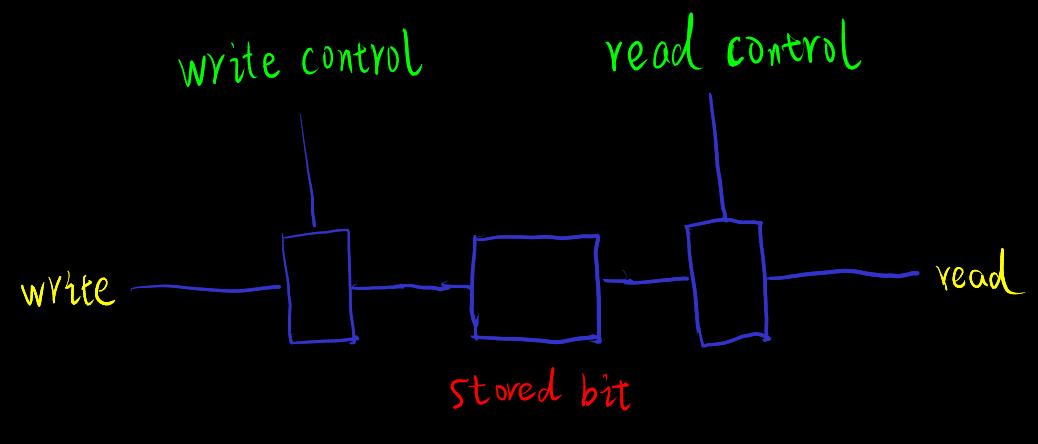 write control
read control
write
read
stored bit